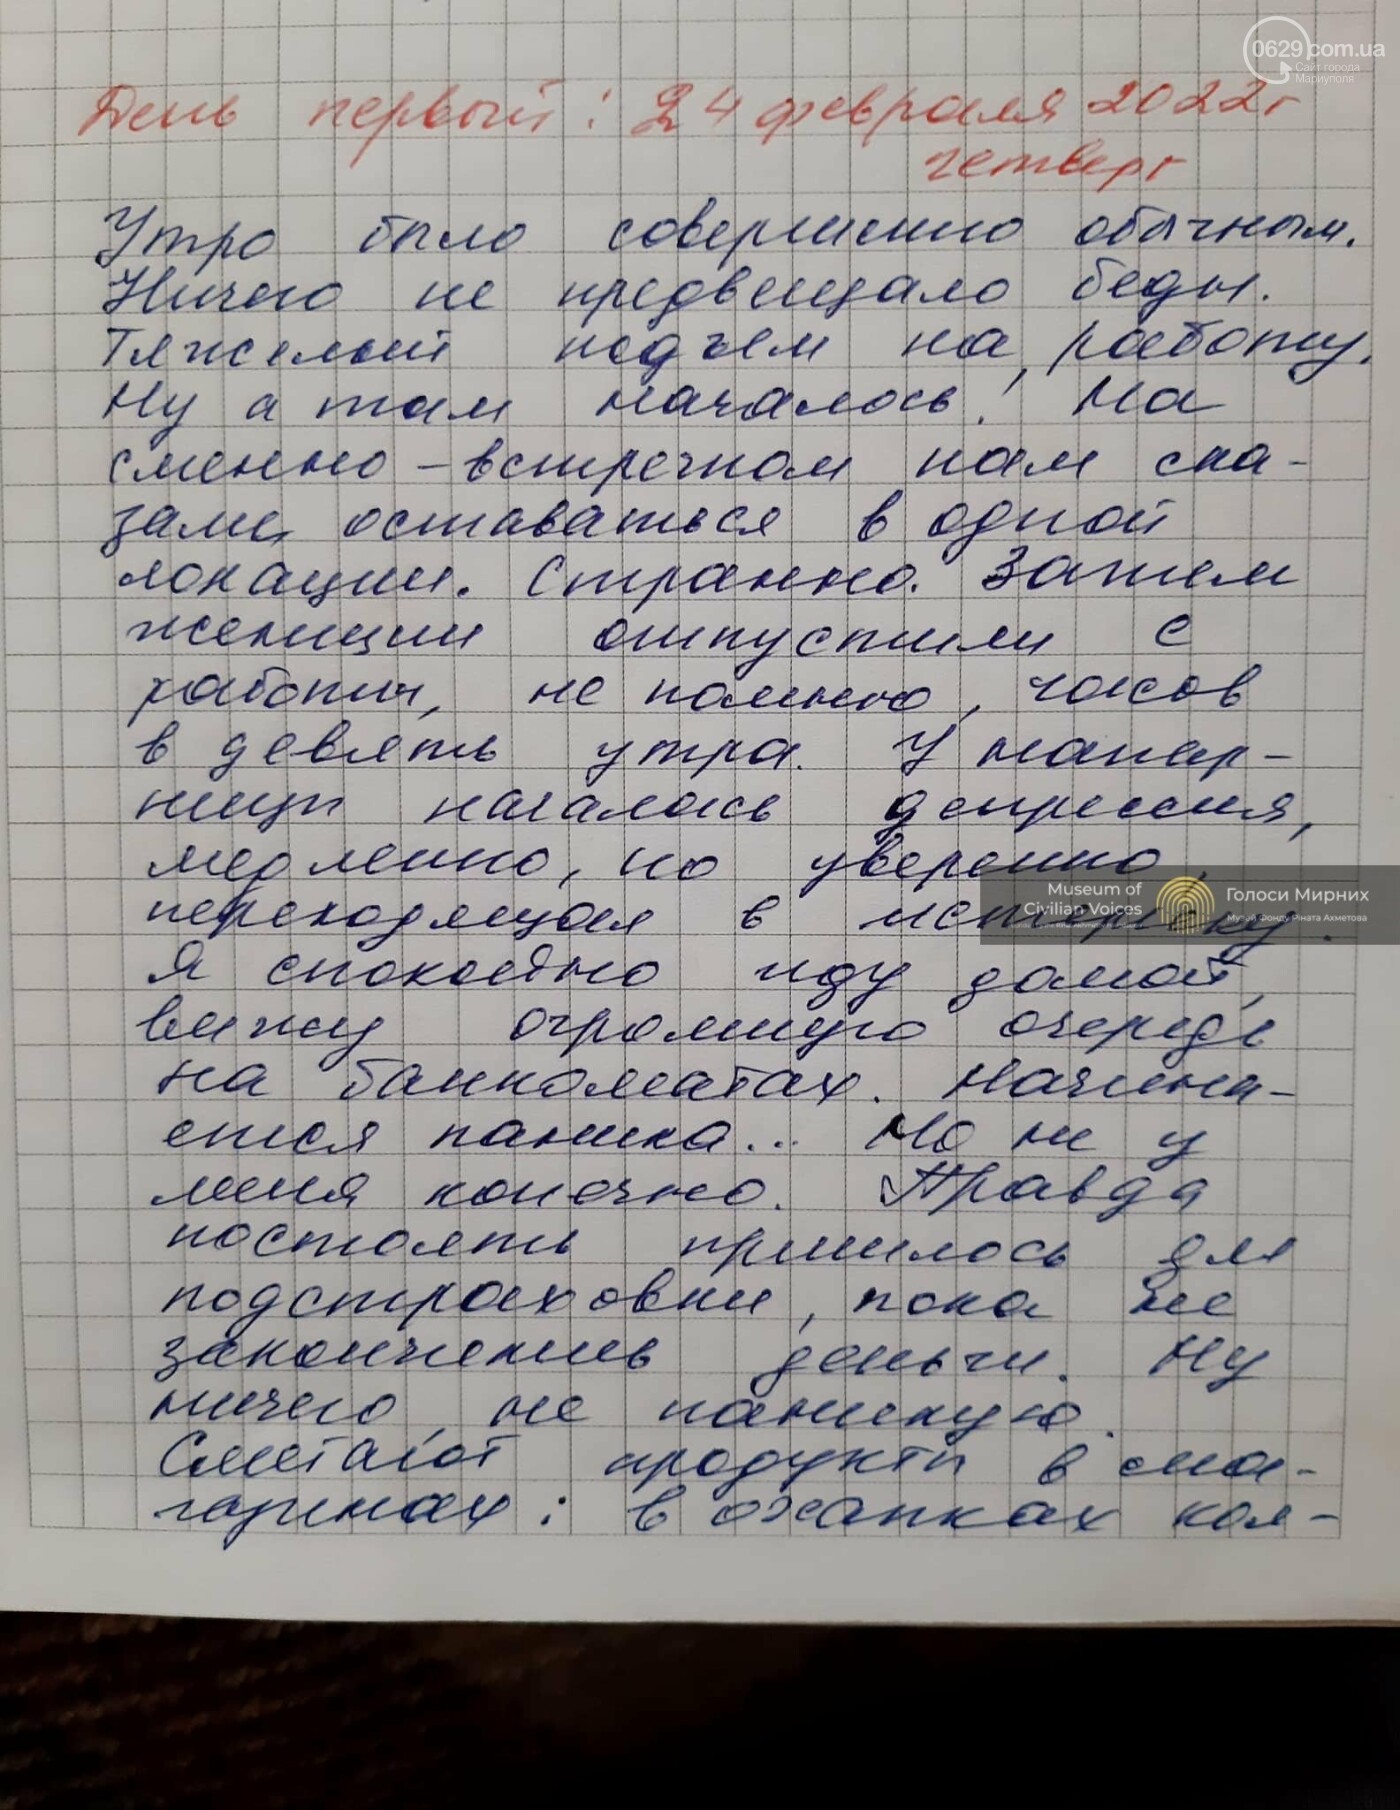 0629.com.ua
Сайт города
Мариуполя
День первый: 24 февраля 2022г
четверг
Утро было совершенно обычным.
Ничего не предвещало беды.
Тяжелый подъем на работу.
Ну а там началось! На
сменно-встречном нам ска-
зали, оставаться в одной
локации. Странно. Затем
женщин отпустили с
работы, не помню, часов
в девять утра. У напар-
ницы началась депрессия,
медленно, но уверенно,
переходящая в истерику.
Я спокойно иду домой,
вижу огромную очередь
на банкоматах. Начина-
ется паника... Но не у
меня конечно. Правда
постоять пришлось для
подстраховки, пока не
закончились деньги. Ну
ничего, не паникую.
Сметают продукты в ма-
газинах: в охапках кол-
Museum of
Civilian Voices
Голоси Мирних
Музей Фонду Ріната Ахметова